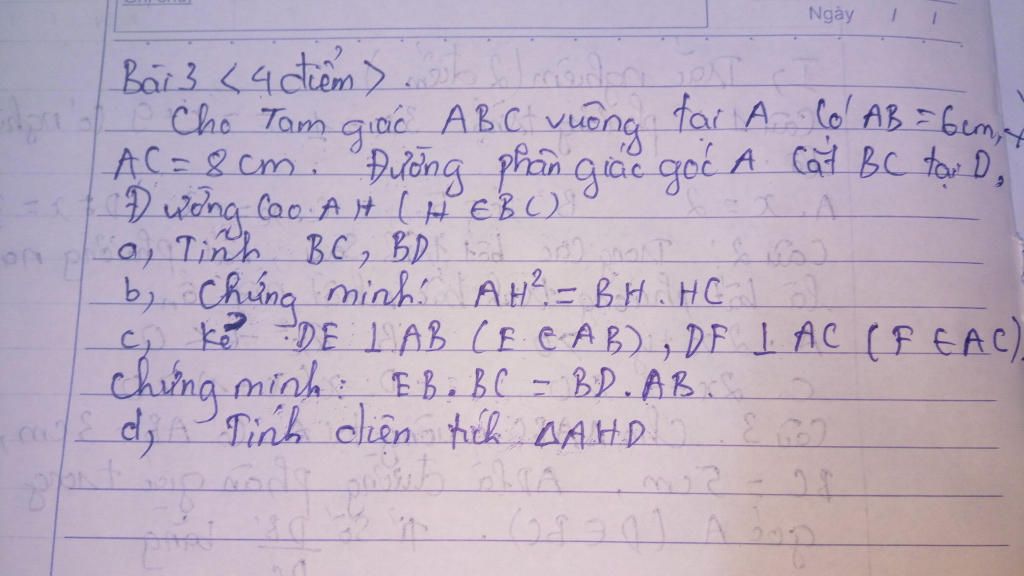 Ngày / /
Bài 3 < 4 điểm > .
Cho Tam giác ABC vuông tại A Có AB = 6cm,
AC = 8 cm. Đường phân giác góc A Cắt BC tại D,
Đường Cao AH ( H ∈ BC )
a, Tính BC, BD
b, Chứng minh: AH² = BH. HC
c, Kẻ DE ⊥ AB ( E ∈ AB ), DF ⊥ AC ( F ∈ AC ).
Chứng minh: EB. BC = BD. AB.
d, Tính diện tích ΔAHD